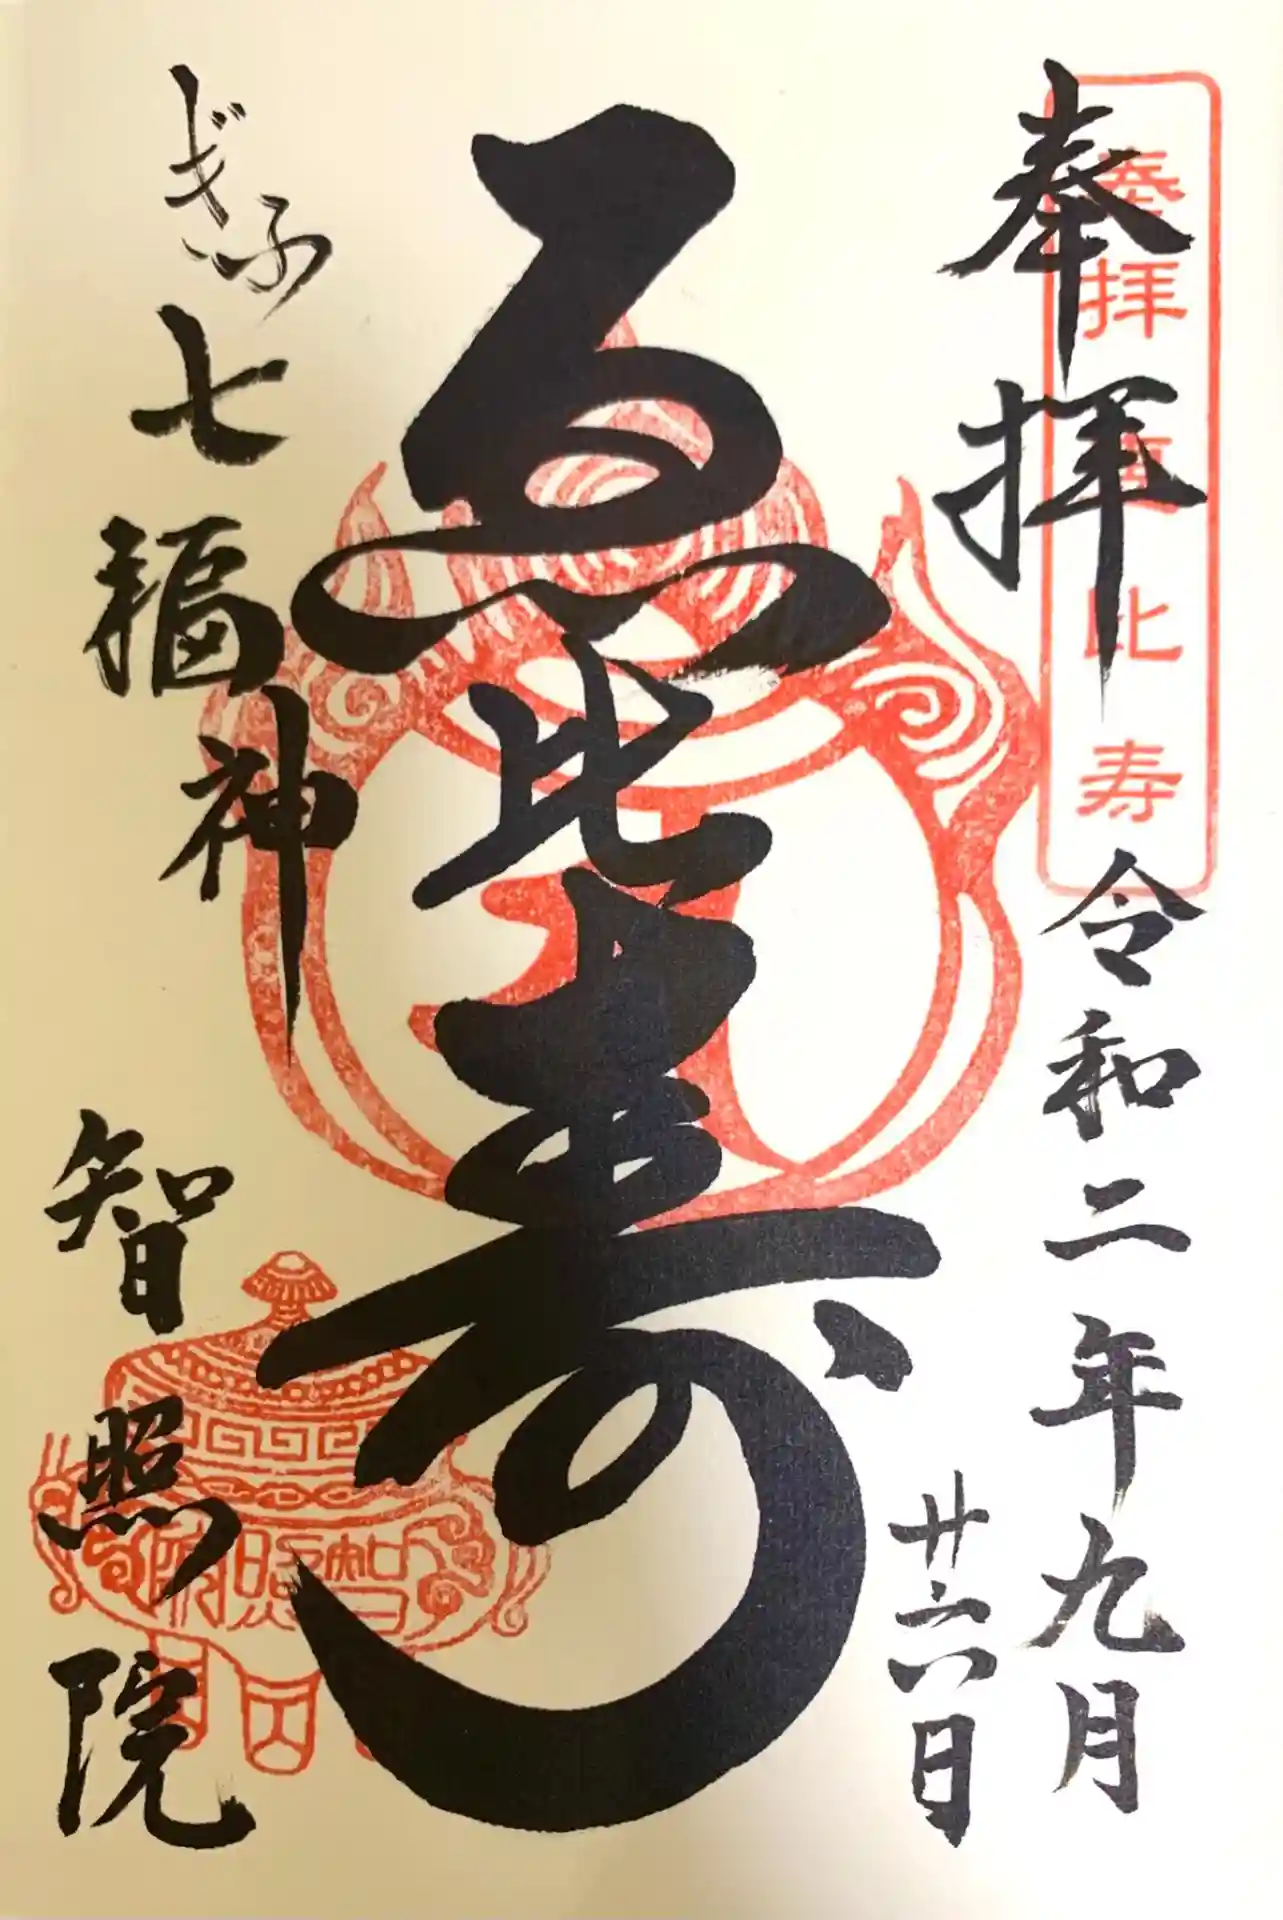 奉拝
奉拝 恵比寿
令和二年九月
廿六日
恵比寿
ぎふ七福神
智照院
智照院